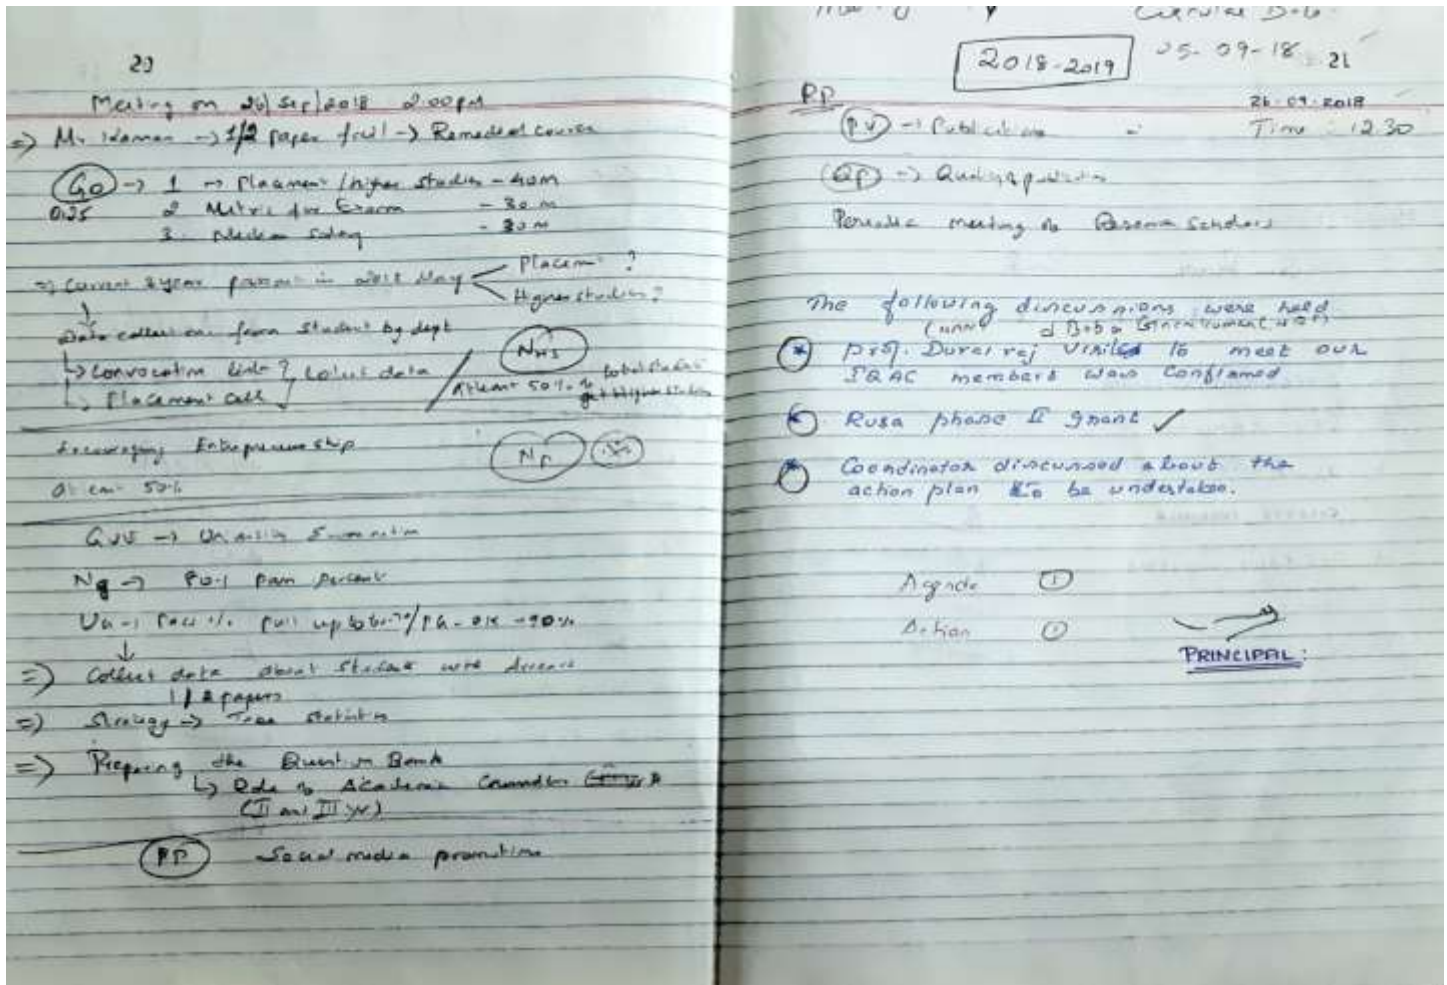 20
Meeting on 26/Sep/2018 2.00pm
=> Mr. → 1/2 paper fail → Remedial courses
GO → 1 → Placement / higher studies - 40m
0.25 2 Metric for Exam - 30 m
3. Median Salary - 30 m
=> Current 3 year passout in 2018 May Placement ?
Higher studies ?
Data collection from Student by dept
↳ Convocation link ? Collect data
↳ Placement cell
NHS
Atleast 50% total student get Higher studies
Encouraging Entrepreneurship
NP
Atleast 50%
GUE → University Examination
Ng → 80% pass percent
UG → Pass % pull up to /PG - OK - 90%
↓
=> Collect data about Student with Arrears
1/2 papers
=> Strategy → Tree statistics
=> Preparing the Question Bank
↳ Role of Academic Counsellor
(II and III yr)
PP Social media promotion
Circular Date
2018-2019 05-09-18 21
PP 26.09.2018
PU → Publications Time : 12.30
QP → Quality publication
Periodic meeting of Research Scholars
The following discussions were held
Prof. Durai raj visited to meet our
IQAC members was confirmed
Rusa phase II grant ✓
Coordinator discussed about the
action plan to be undertaken.
Agenda 1
Action
PRINCIPAL: